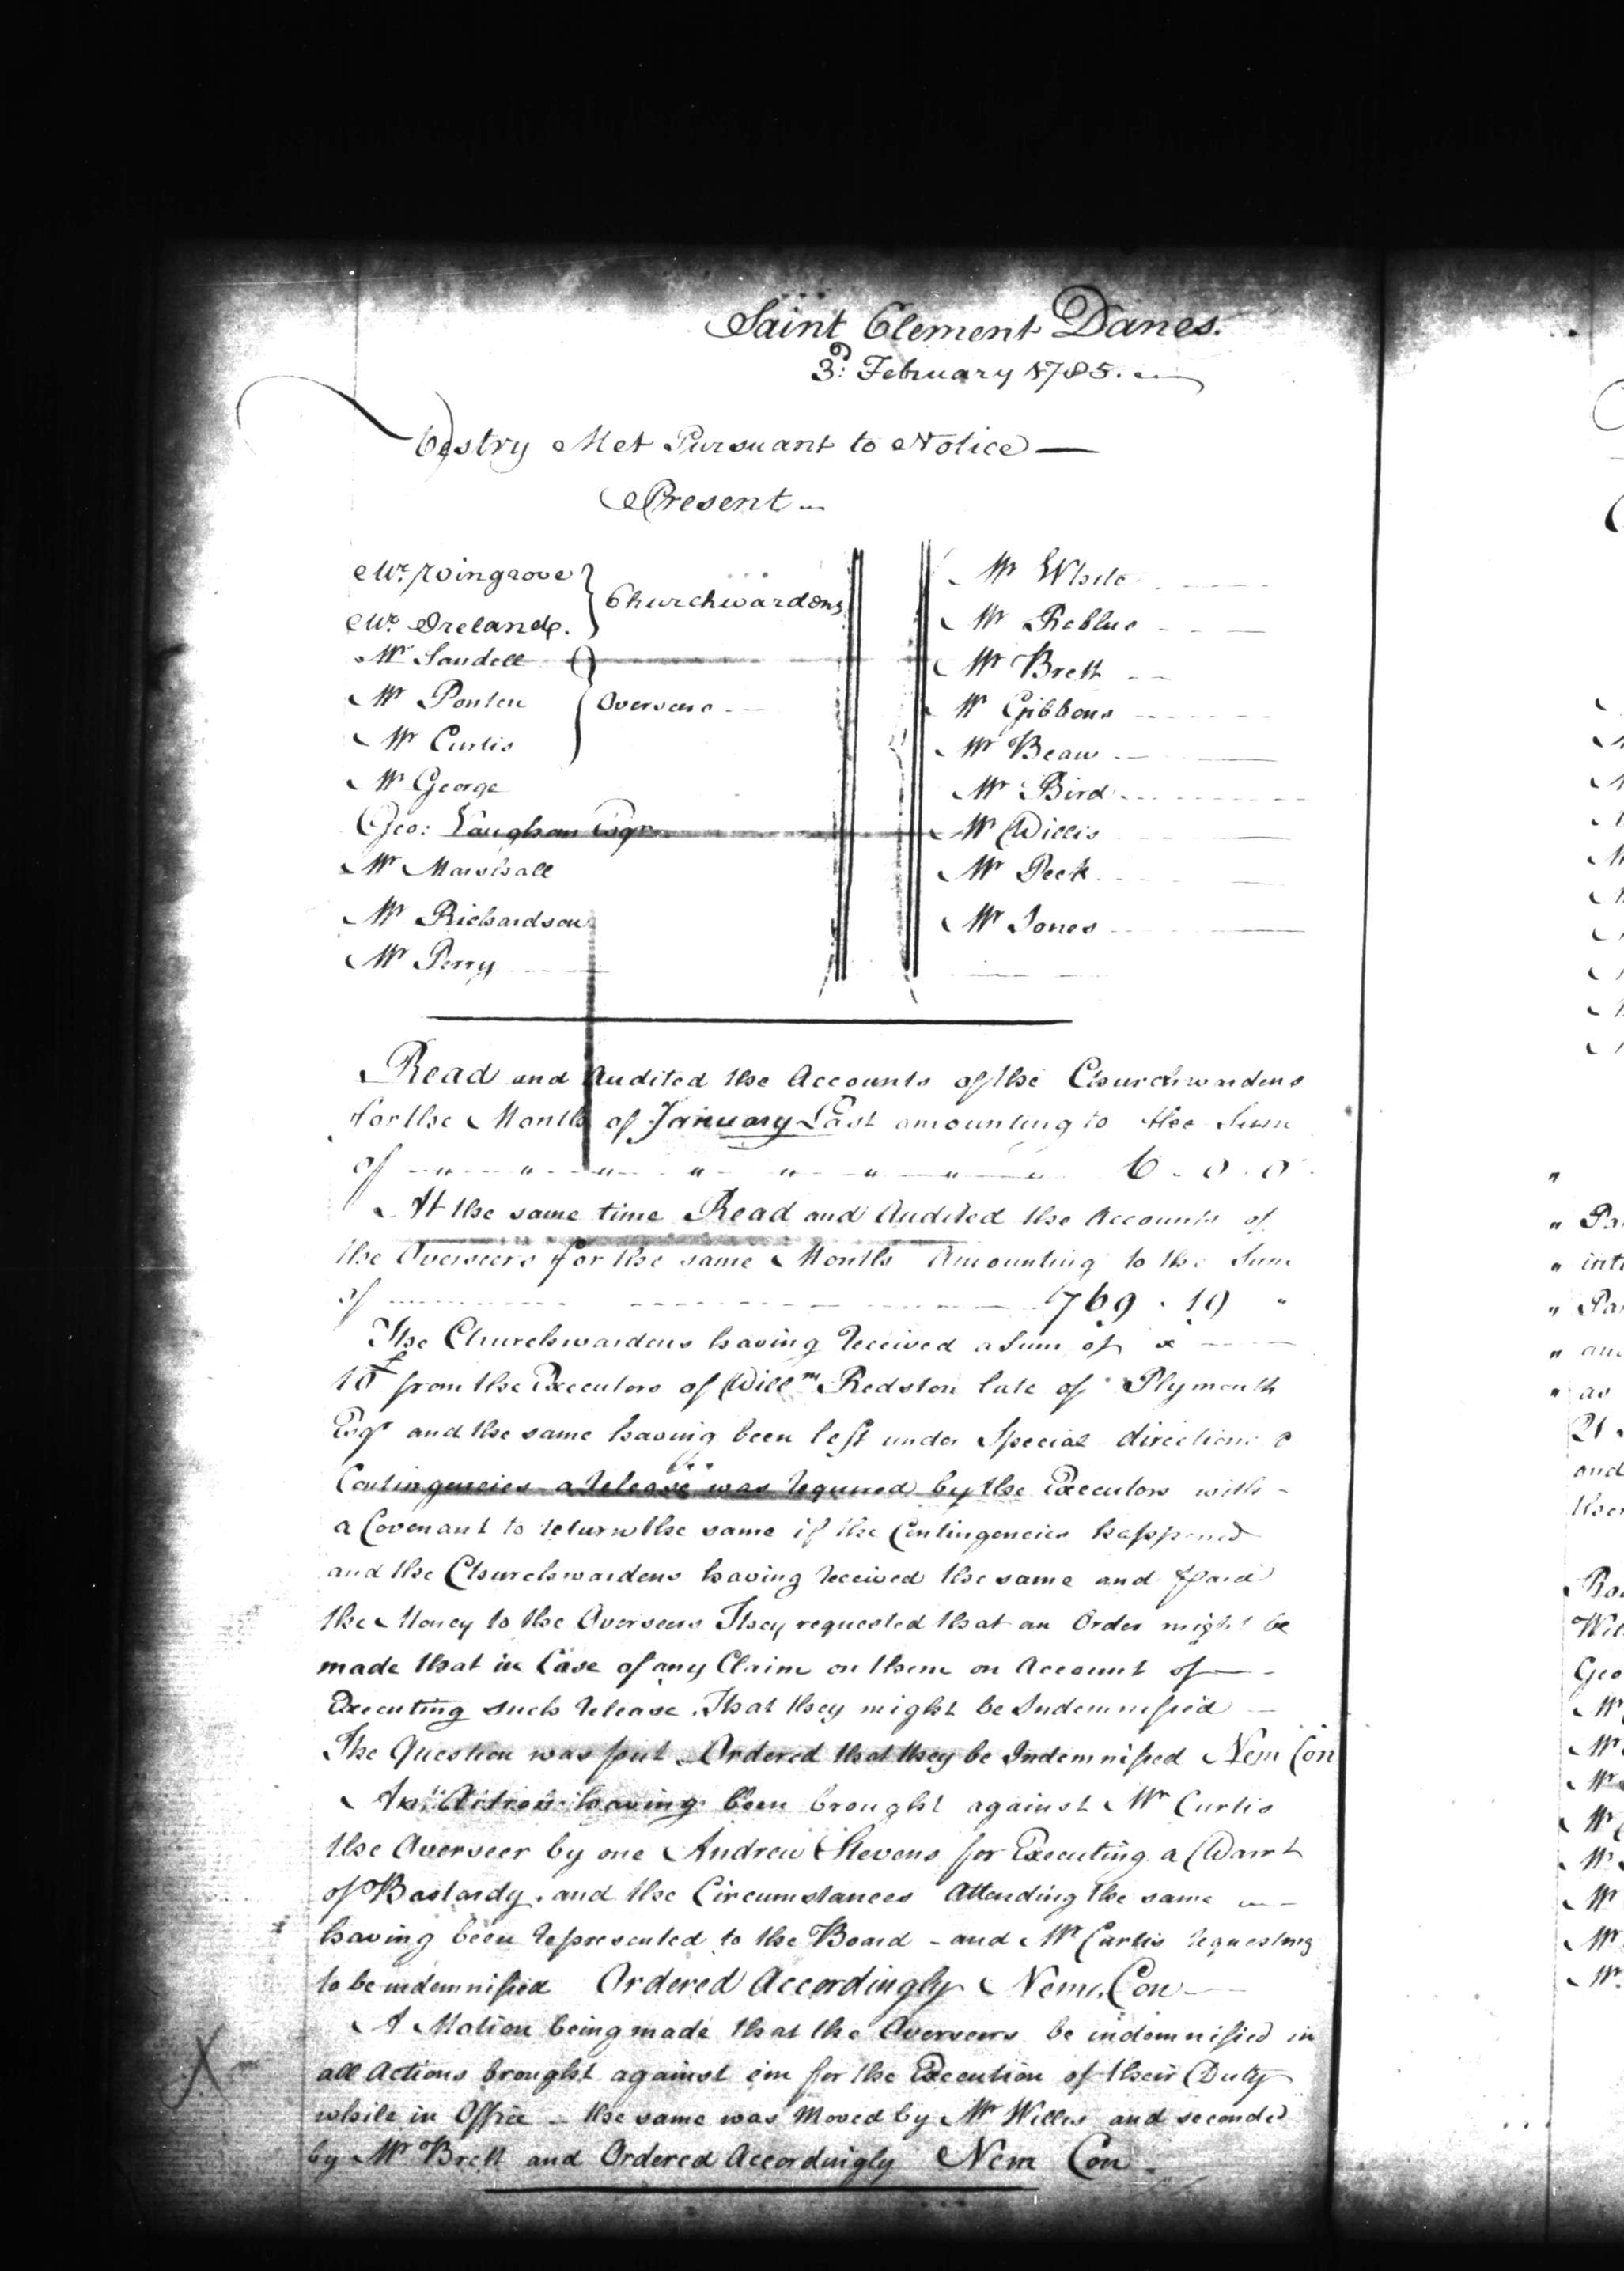 Saint Clement Danes.
3d: February 1785.
Vestry Met Pursuant to Notice —
Present
Mr. Wingrove } Churchwardens
Mr. Ireland.
Mr Sandell
Mr Ponten } Overseers
Mr Curtis
Mr George
Geo: Vaughan Esqr
Mr Marshall
Mr Richardson
Mr Perry
Mr White
Mr
Mr Brett
Mr Gibbons
Mr Bean
Mr Bird
Mr Willis
Mr Peck
Mr Jones
Read and Audited the Accounts of the Churchwardens
for the Month of January Last amounting to the Sum
of 6 . 0 . 0
At the same time Read and Audited the Accounts of
the Overseers for the same Month Amounting to the Sum
of 769 . 19 "
The Churchwardens having received a Sum of
10£ from the Executors of Willm Redston late of Plymouth
Esqr and the same having been left under Special directions &
Contingencies a release was required by the Executors with
a Covenant to return the same if the Contingencies happened
and the Churchwardens having received the same and paid
the Money to the Overseers They requested that an Order might be
made that in Case of any Claim on them on Account of —
Executing such release That they might be Indemnified
The Question was put Ordered that they be Indemnified Nem Con
An Action having been brought against Mr Curtis
the Overseer by one Andrew Stevens for Executing a Warrt
of Bastardy. and the Circumstances Attending the same
having been represented to the Board - and Mr Curtis requesting
to be indemnified Ordered Accordingly Nem. Con
A Motion being made that the Overseers be indemnified in
all Actions brought against em for the Execution of their Duty
while in Office - the same was Moved by Mr Willis and seconded
by Mr Brett and Ordered Accordingly Nem Con